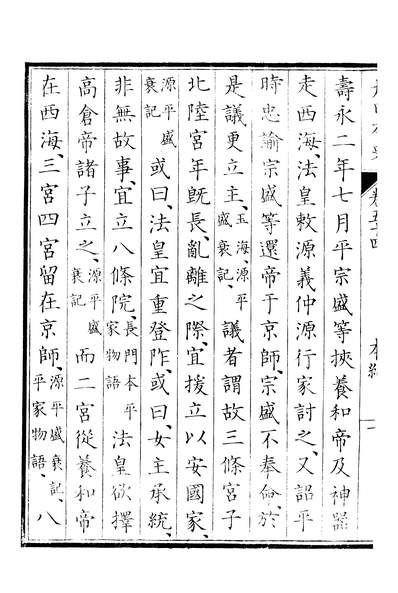 壽永二年七月平宗盛等挾養和帝及神器
走西海、法皇敕源義仲源行家討之、又詔平
時忠諭宗盛等還帝于京師、宗盛不奉命、於
是議更立主、玉海、源平盛衰記、議者謂故三條宮子
北陸宮年既長、亂離之際、宜援立以安國家、
源平盛衰記或曰、法皇宜重登阼、或曰、女主承統、
非無故事、宜立八條院、長門本平家物語法皇欲擇
高倉帝諸子立之、源平盛衰記而二宮從養和帝
在西海、三宮四宮留在京師、源平盛衰記、平家物語、八